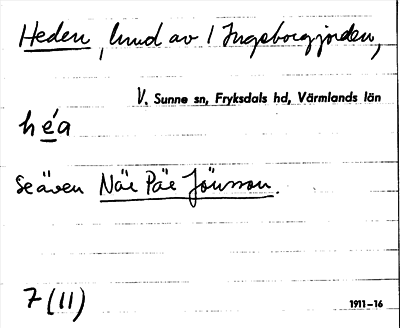 Heden, hmd av 1 Ingeborgjorden,
V. Sunne sn, Fryksdals hd, Värmlands län
héa
Se även När Pär Jönsson.
7 (11)
1911–16